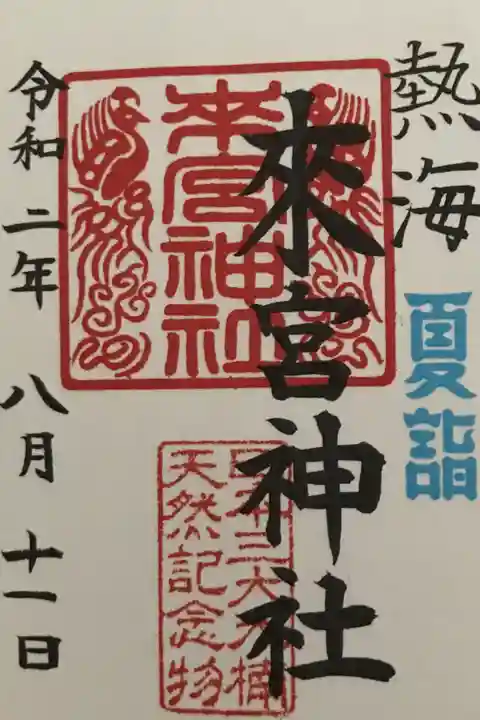 熱海
夏詣
來宮神社
来宮神社
日本三大楠
天然記念物
令和二年 八月 十一日